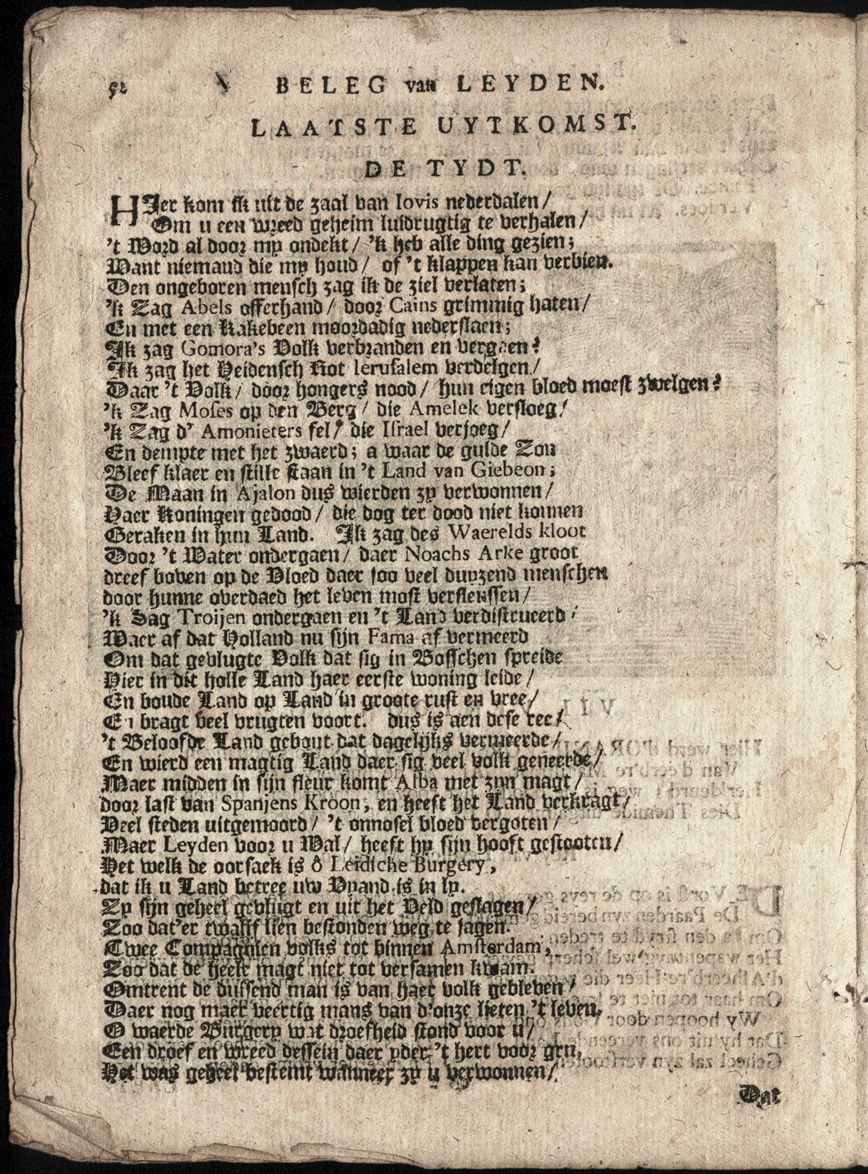 52 BELEG van LEYDEN.
LAATSTE UYTKOMST.
DE TYDT.
HIer kom ik uit de zaal van Iovis nederdalen/
Om u een wreed geheim luidrugtig te verhalen/
't Word al door my ondekt/ 'k heb alle ding gezien;
Want niemand die my houd/ of 't klappen kan verbien.
Den ongeboren mensch zag ik de ziel verlaten;
'k Zag Abels offerhand/ door Cains grimmig haten/
En met een Kakebeen moordadig nederslaen;
Ik zag Gomora's Volk verbranden en vergaen!
Ik zag het Heidensch Rot Ierusalem verdelgen/
Daar 't Volk/ door hongers nood/ hun eigen bloed moest zwelgen!
'k Zag Moses op den Berg/ die Amelek versloeg/
'k Zag d' Amonieters fel/ die Israel verjoeg/
En dempte met het zwaerd; a waar de gulde Zon
Bleef klaer en stille staan in 't Land van Giebeon;
De Maan in Ajalon dus wierden zy verwonnen/
Haer Koningen gedood/ die dog ter dood niet konnen
Geraken in hun Land. Ik zag des Waerelds kloot
Door 't Water ondergaen/ daer Noachs Arke groot
dreef boven op de Vloed daer soo veel duyzend menschen
door hunne overdaed het leven most verslenssen/
'k Sag Troijen ondergaen en 't Land verdistrueerd/
Waer af dat Holland nu sijn Fama af vermeerd
Om dat gevlugte Volk dat sig in Bosschen spreide
Hier in dit holle Land haer eerste woning leide/
En boude Land op Land in groote rust en vree/
En bragt veel vrugten voort. dus is aen dese ree/
't Beloofde Land gebout dat dagelijks vermeerde/
En wierd een magtig Land daer sig veel volk geneerde/
Maer midden in sijn fleur komt Alba met zyn magt/
door last van Spanjens Kroon, en heeft het Land verkragt/
Veel steden uitgemoord/ 't onnosel bloed vergoten/
Maer Leyden voor u Wal/ heeft hy sijn hooft gestooten/
Het welk de oorsaek is ô Leidsche Burgery,
dat ik u Land betree uw Vyand is in ly.
Zy sijn geheel gevlugt en uit het Veld geslagen/
Zoo dat'er twalff lien bestonden weg te jagen.
Twee Compagnien volks tot binnen Amsterdam,
Zoo dat de heele magt niet tot versamen kwam.
Omtrent de duisend man is van haer volk gebleven/
Daer nog maer veertig mans van d'onze lieten 't leven.
O waerde Burgery wat droefheid stond voor u/
Een droef en wreed dessein daer yder 't hert voor gru,
Het was geheel bestemt wanneer zy u verwonnen/
Dat